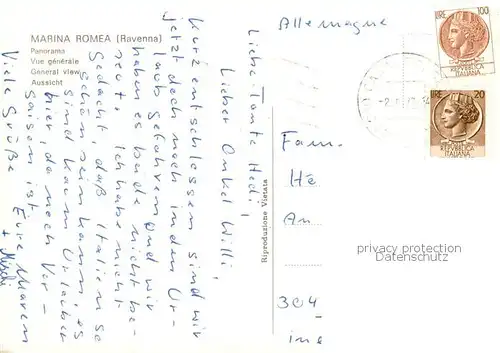 MARINA ROMEA (Ravenna)
Panorama
Vue générale
General view
Aussicht
Liebe Tante Hedi,
Lieber Onkel Willi,
kurz entschlossen sind wir
jetzt doch noch in den Ur-
laub gefahren und wir
haben es bis heute nicht be-
reut. Ich habe nicht
gedacht, daß Italien so
schön sein kann, es
sind kaum Urlauber
hier, da noch Vor-
saison ist.
Viele Grüße
Eure Maren
+ Michi
Riproduzione Vietata
Allemagne
LIRE 100
REPVBBLICA
ITALIANA
LIRE 20
REPVBBLICA
ITALIANA
Fam.
He
An
304
in
privacy protection
Datenschutz